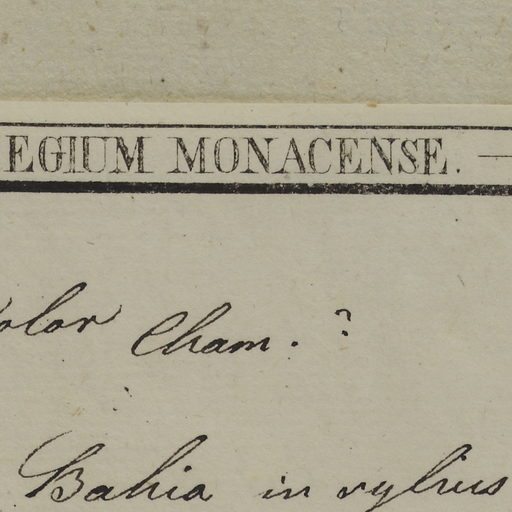 EGIUM MONACENSE. —
olor Cham. ?
Bahia in sylvis